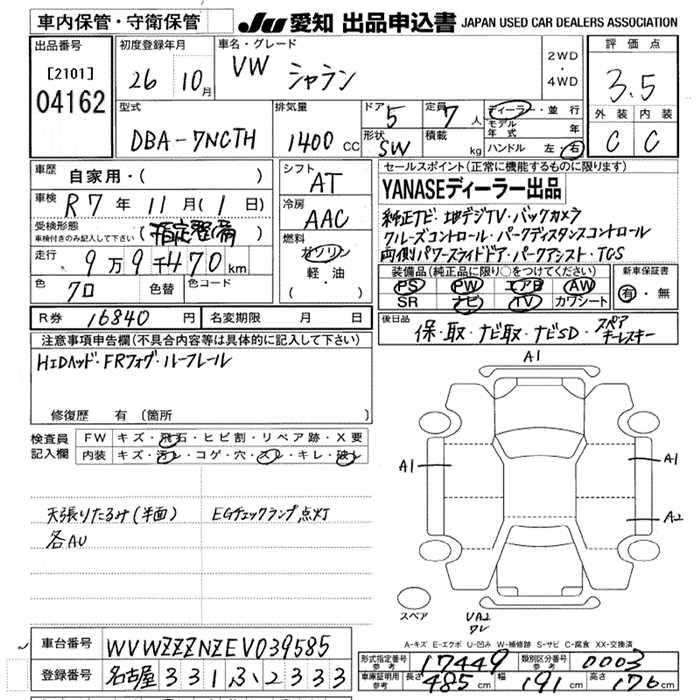 車内保管・守衛保管
JU 愛知 出品申込書 JAPAN USED CAR DEALERS ASSOCIATION
出品番号
[2101]
04162
初度登録年月
26 10月
車名・グレード
VW シャラン
2WD
・
4WD
評価点
3.5
外装 内装
C C
型式
DBA-7NCTH
排気量
1400 CC
ドア 5
形状 SW
定員 7人
積載 kg
ディーラー・並行
モデル年式 年
ハンドル 左・右
車歴 自家用・( )
車検 R7年11月(1日)
受検形態
車検付きのみ記入して下さい
(指定整備)
走行 9万9千470km
色 クロ 色替 色コード
R券 16840円 名変期限 月 日
シフト AT
冷房 AAC
燃料 ガソリン
軽・油
セールスポイント(正常に機能するものに限ります)
YANASEディーラー出品
純正ナビ・地デジTV・バックカメラ
クルーズコントロール・パークディスタンスコントロール
両側パワースライドドア・パークアシスト・TCS
装備品(純正品に限り○をつけてください)
PS PW エアB AW
SR ナビ TV カワシート
新車保証書
有・無
後日品
保・取・ナビ取・ナビSD・スペアキーレスキー
注意事項申告欄(不具合内容等は具体的に記入して下さい)
HIDヘッド・FRフォグ・ルーフレール
修復歴 有(箇所
検査員
記入欄
FW キズ・飛石・ヒビ割・リペア跡・X要
内装 キズ・汚レ・コゲ・穴・スレ・キレ・破レ
天張りたるみ(半面)
各AU
EGチェックランプ点灯
A1
A1
A1
A2
スペア
UA2
ワレ
A-キズ E-エクボ U-凹み W-補修跡 S-サビ C-腐食 XX-交換済
車台番号 WVWZZZNZEV039585
登録番号 名古屋331ふ2333
形式指定番号 参考 17449
類別区分番号 参考 0003
車庫証明用 参考 長さ 485cm 幅 191cm 高さ 176cm